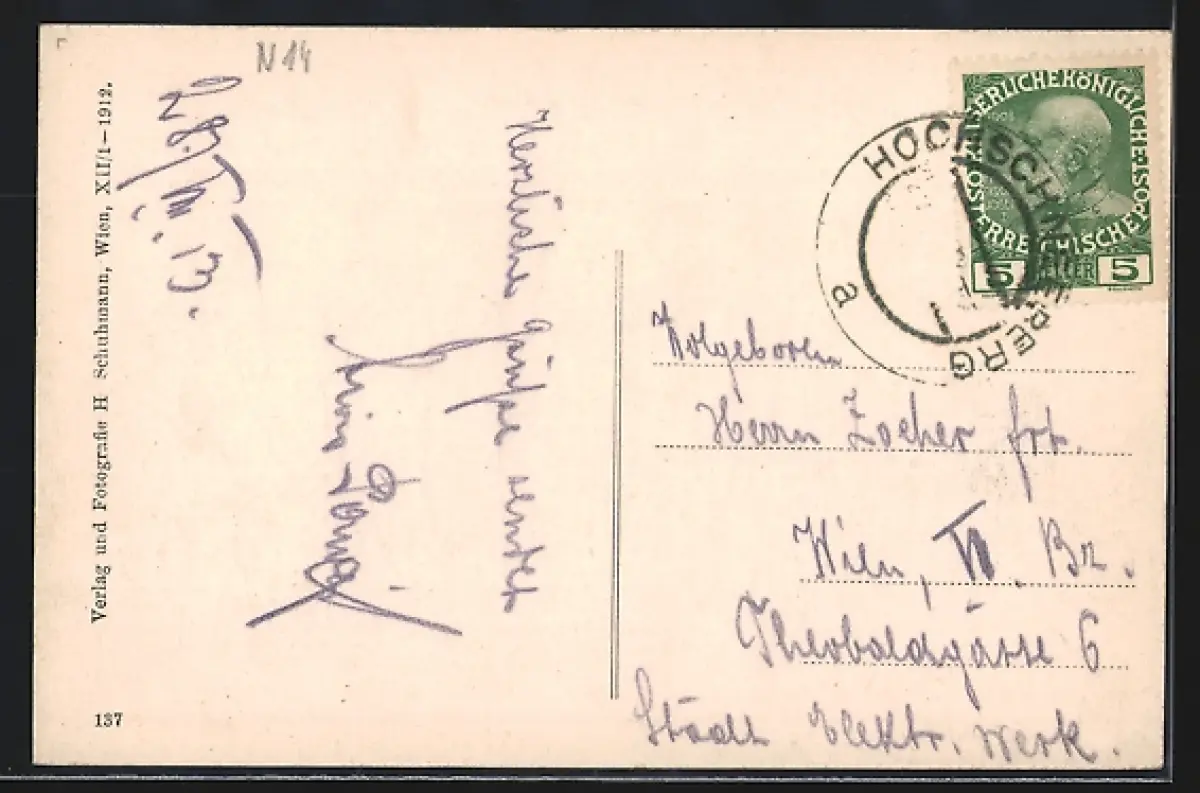 N 14
Verlag und Fotografie H Schuhmann, Wien, XII/1-1912.
137
28. VII. 13.
Herzliche Grüße sendet
KAISERLICHEKÖNIGLICHE
ÖSTERREICHISCHEPOST
1908
5 HELLER 5
HOCHSCHNEEBERG
a
Wolgeboren
Herrn Zocher frt.
Wien, VI. Bz.
Theobaldgasse 6
Städt Elektr. Werk.